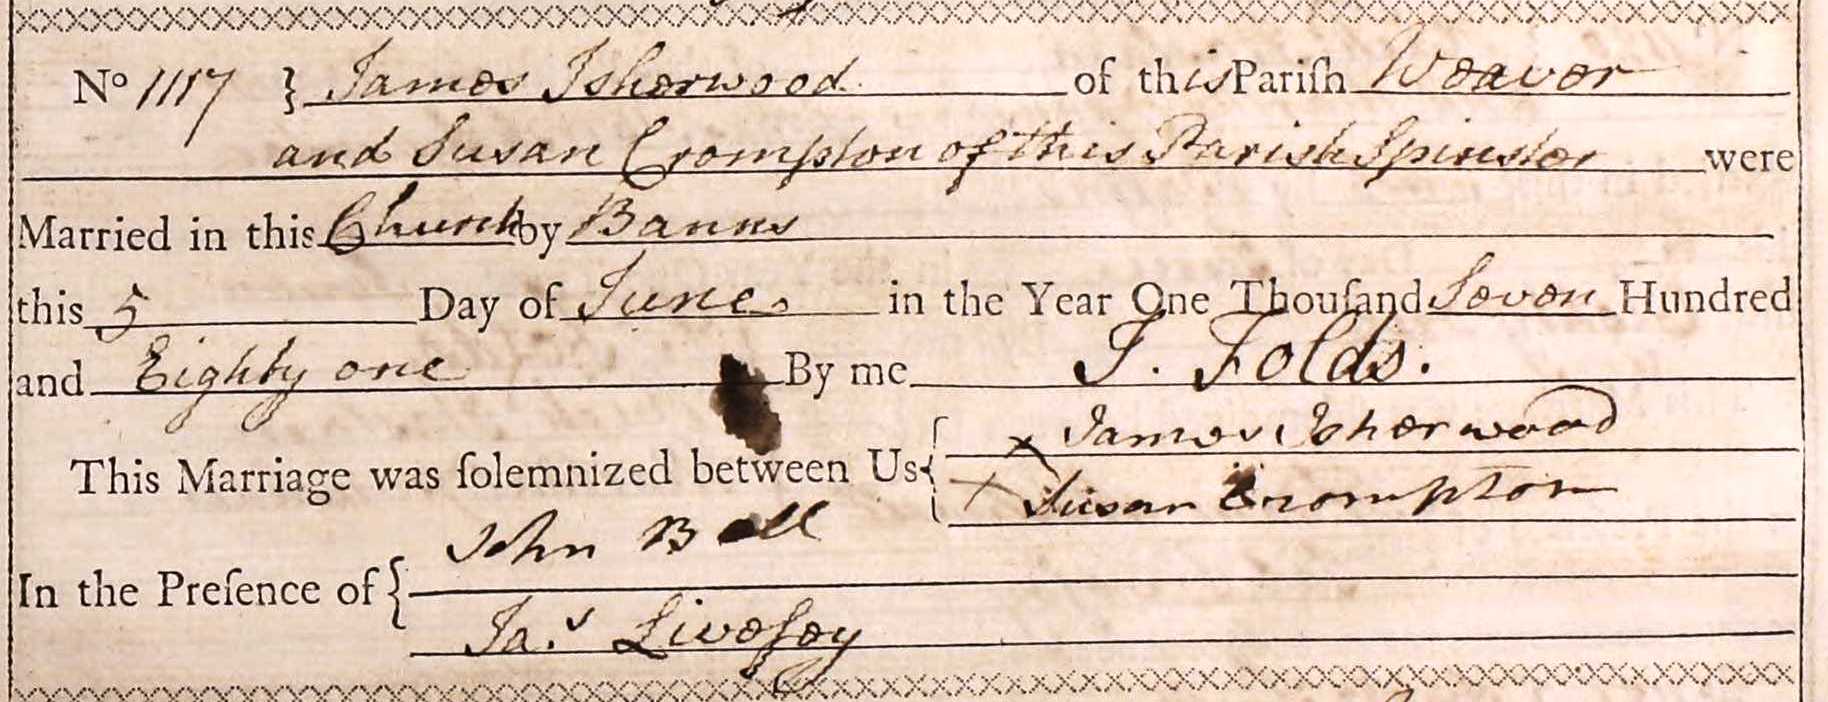 No 1117 } James Isherwood of this Pariſh Weaver
and Susan Crompton of this Parish Spinster were
Married in this Church by Banns
this 5 Day of June in the Year One Thouſand Seven Hundred
and Eighty one By me J. Folds.
This Marriage was ſolemnized between Us { x James Isherwood
x Susan Crompton
In the Preſence of { John Bell
Ja.s Liveſey